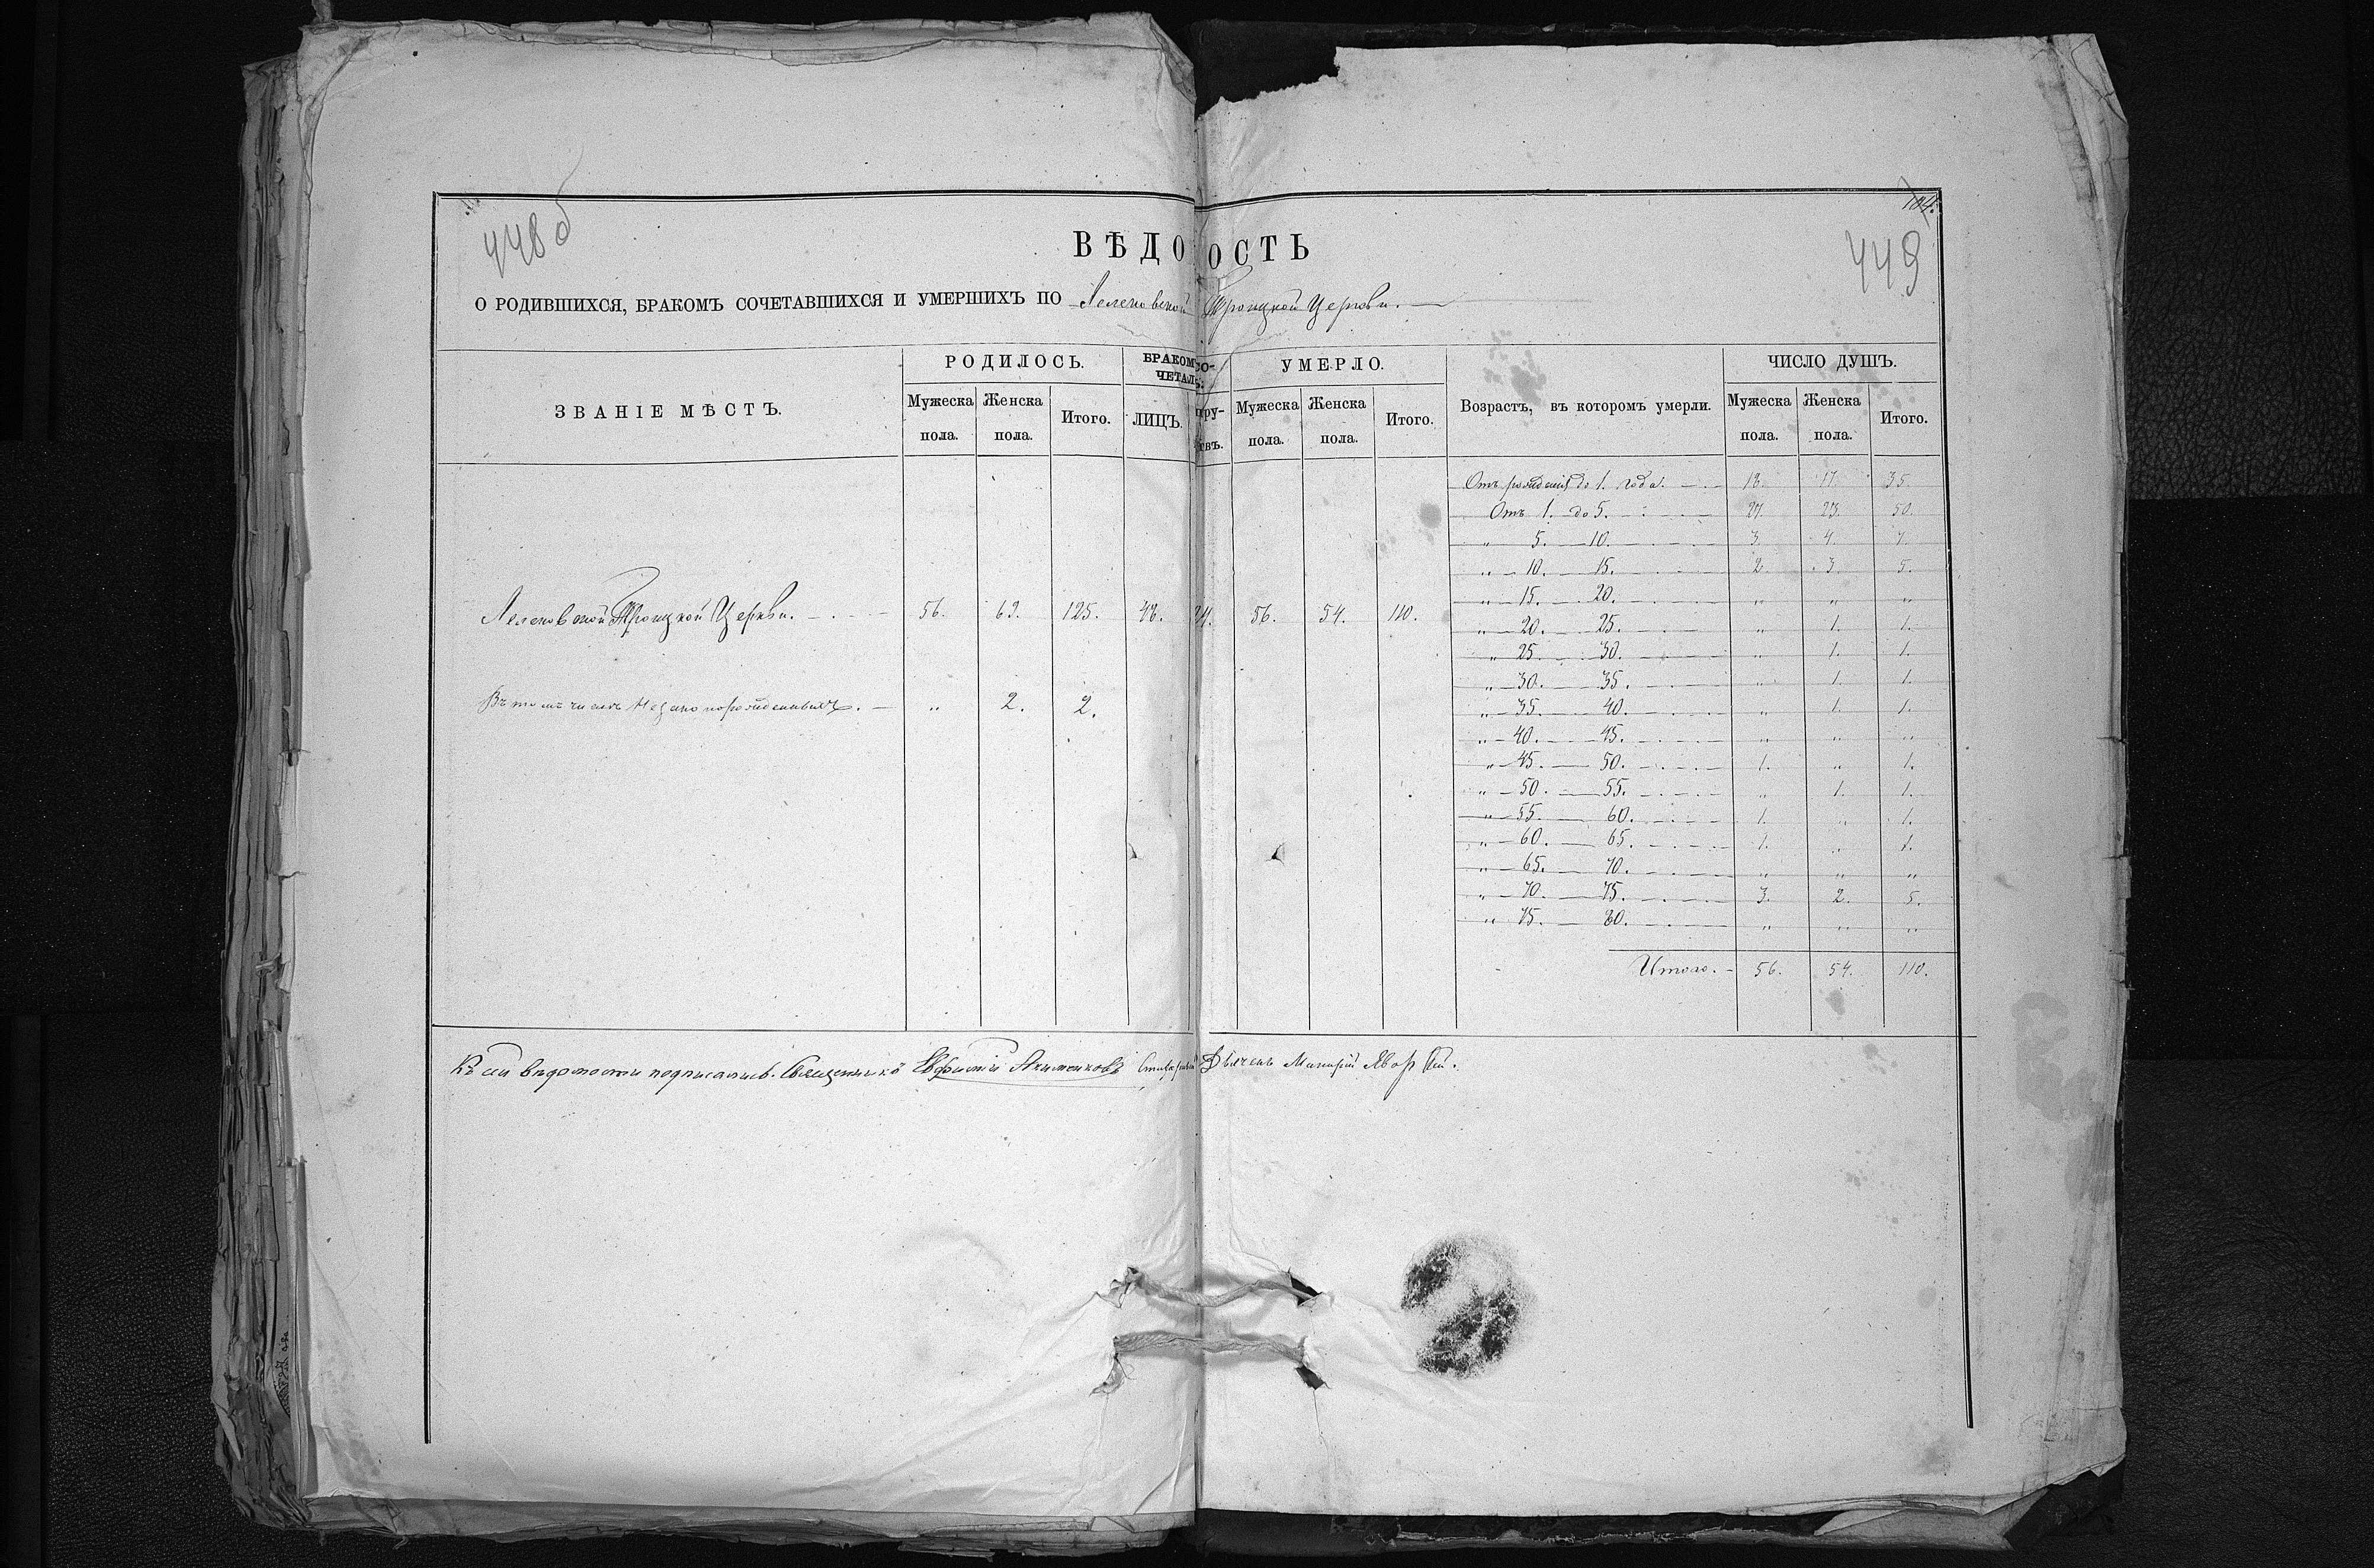 448 об
104.
449
ВѢДОМОСТЬ
О РОДИВШИХСЯ, БРАКОМЪ СОЧЕТАВШИХСЯ И УМЕРШИХЪ ПО Троицкой Церкви.
ЗВАНІЕ МѢСТЪ.
РОДИЛОСЬ.
Мужеска пола.
Женска пола.
Итого.
БРАКОМЪ СО-
ЧЕТАЛ
ЛИЦЪ.
УМЕРЛО.
Мужеска пола.
Женска пола.
Итого.
Возрастъ, въ которомъ умерли.
ЧИСЛО ДУШЪ.
Мужеска пола.
Женска пола.
Итого.
Троицкой Церкви. 56. 125. 48. 24. 56. 54. 110.
Въ томъ числѣ Незаконорожденныхъ. " 2. 2.
Отъ рожденія до 1. года. 18. 17. 35.
Отъ 1. до 5. 27. 23. 50.
" 5. 10. 3. 4. 7.
" 10. 15. 2. 3. 5.
" 15. 20. " " "
" 20. 25. " 1. 1.
" 25. 30. " 1. 1.
" 30. 35. " 1. 1.
" 35. 40. " 1. 1.
" 40. 45. " " "
" 45. 50. 1. " 1.
" 50. 55. " 1. 1.
" 55. 60. 1. " 1.
" 60. 65. 1. " 1.
" 65. 70. " " "
" 70. 75. 3. 2. 5.
" 75. 80. " " "
Итого. 56. 54. 110.
Къ сей вѣдомости подписались. Священникъ Евфимій Акименковъ